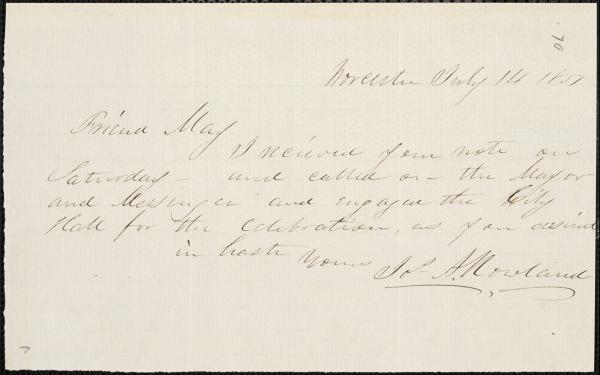 70
Worcester July 14 1857
Friend May
I recieved your note on
Saturday - and called on the Mayor
and Messenger and engaged the City
Hall for the Celebration, as you desired
in haste Yours Jos A. Howland